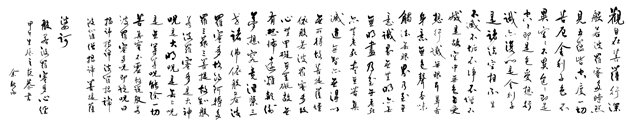 觀自在菩薩行深
般若波羅蜜多時照
見五蘊皆空度一切
苦厄舍利子色不
異空空不異色色即是
空空即是色受想行
識亦復如是舍利子
是諸法空相不生
不滅不垢不淨不增不
減是故空中無色無受
想行識無眼耳鼻舌
身意無色聲香味
觸法無眼界乃至無
意識界無無明亦
無無明盡乃至無老死
亦無老死盡無苦集
滅道無智亦無得以
無所得故菩提薩埵
依般若波羅蜜多故
心無罣礙無罣礙故無
有恐怖遠離顛倒
夢想究竟涅槃三
世諸佛依般若波
羅蜜多故得阿耨多
羅三藐三菩提故知般
若波羅蜜多是大神
咒是大明咒是無上
咒是無等等咒能除一切
苦真實不虛故說般若
波羅蜜多咒即說咒曰
揭諦揭諦波羅揭諦
波羅僧揭諦菩提薩
婆訶
般若波羅蜜多心經